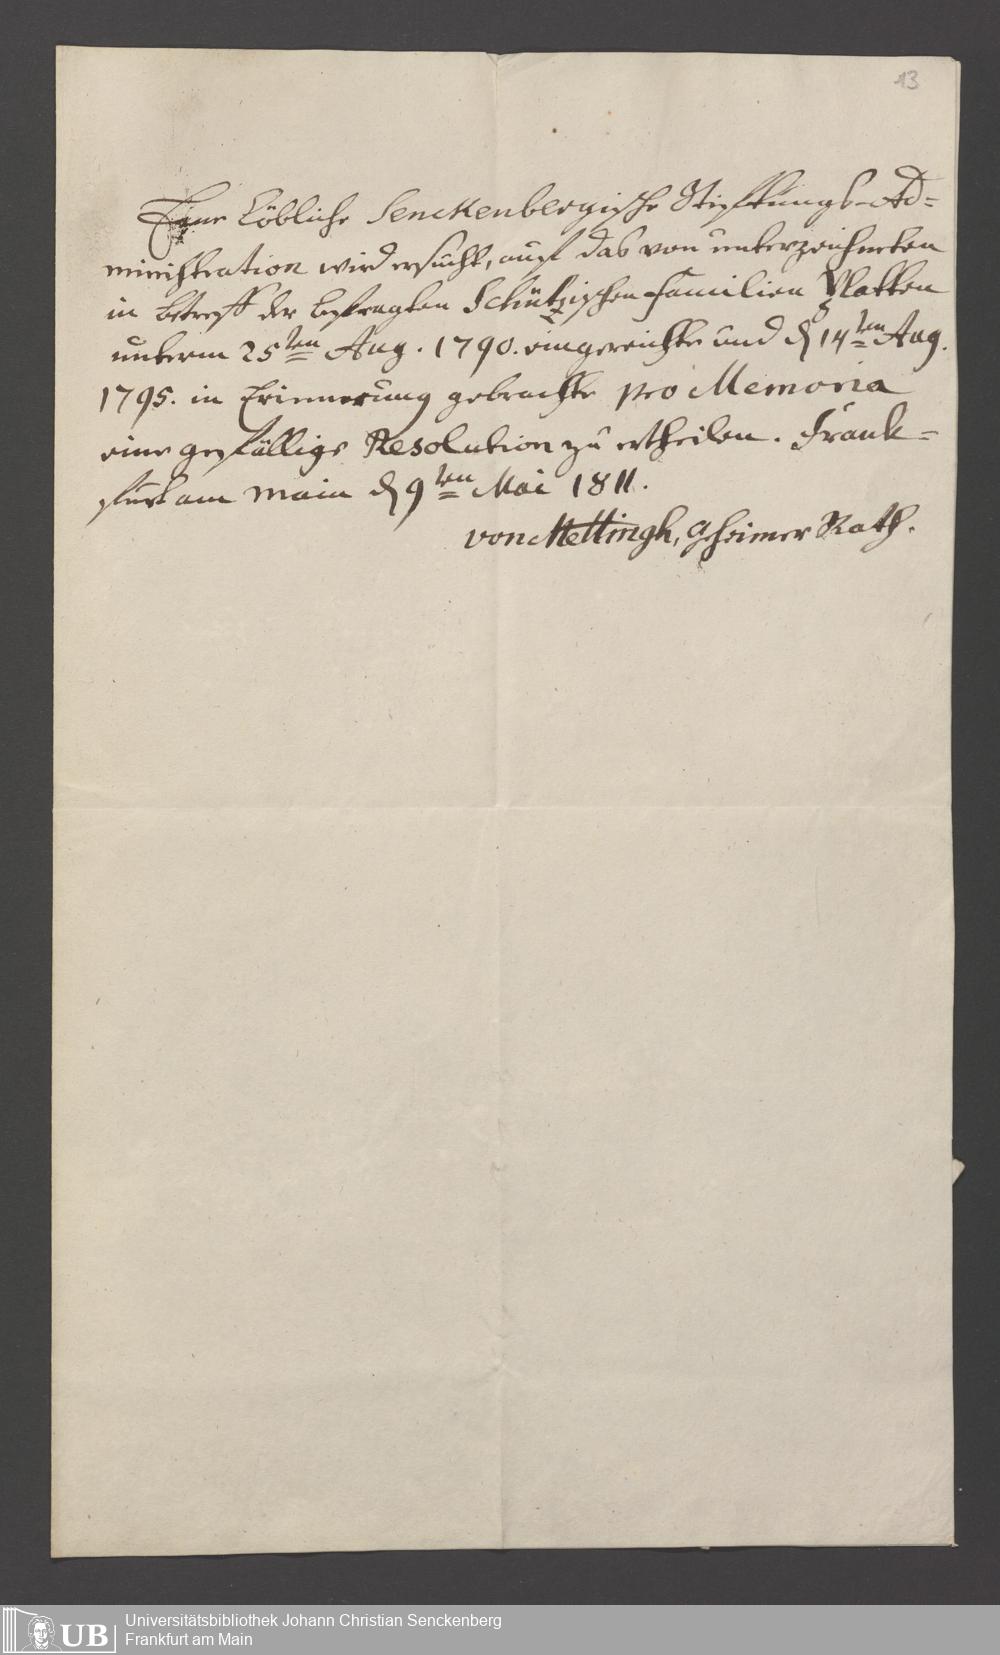 13
Eine Löbliche Senckenbergische Stiftungs-Ad=
ministration wird ersucht, auf das von unterzeichneten
in betreff der besagten Schützischen Familien Platten
unterm 25ten Aug. 1790. eingereichte und d. 14ten Aug.
1795. in Erinnerung gebrachte pro Memoria
eine gefällige Resolution zu ertheilen. Frank=
furt am Main d. 9ten Mai 1811.
von Mettingh, Geheimer Rath.
UB
Universitätsbibliothek Johann Christian Senckenberg
Frankfurt am Main